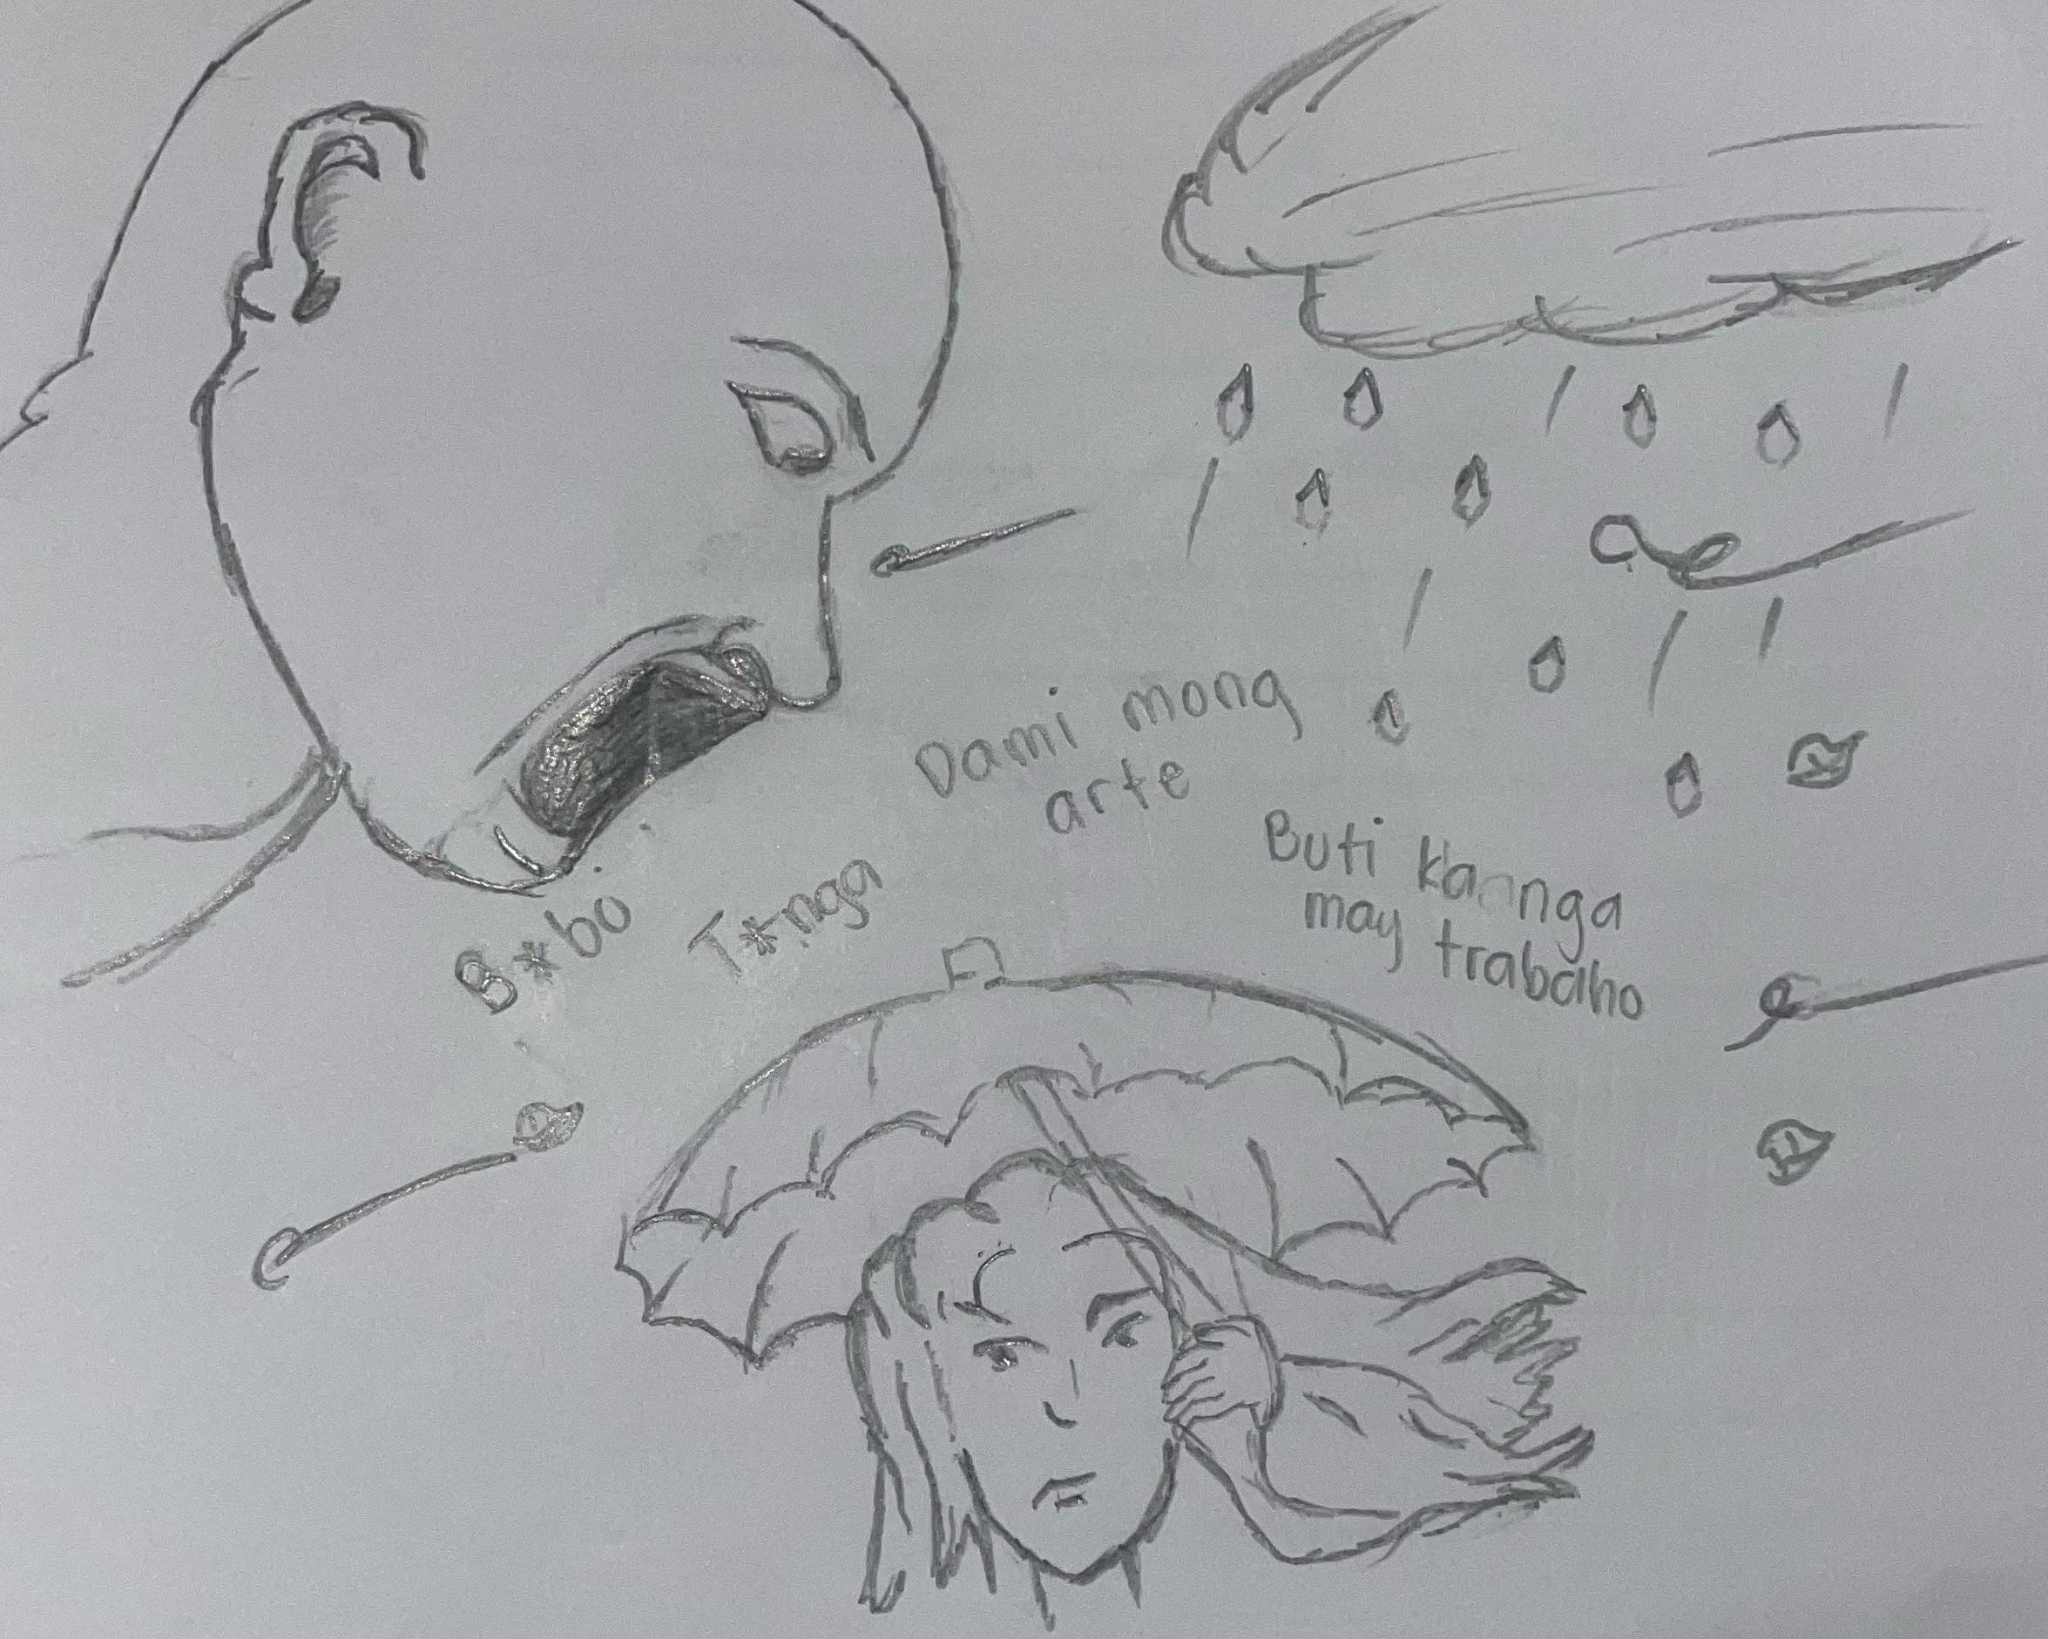 Dami mong
arte
Buti ka nga
may trabaho
B*bo
T*nga